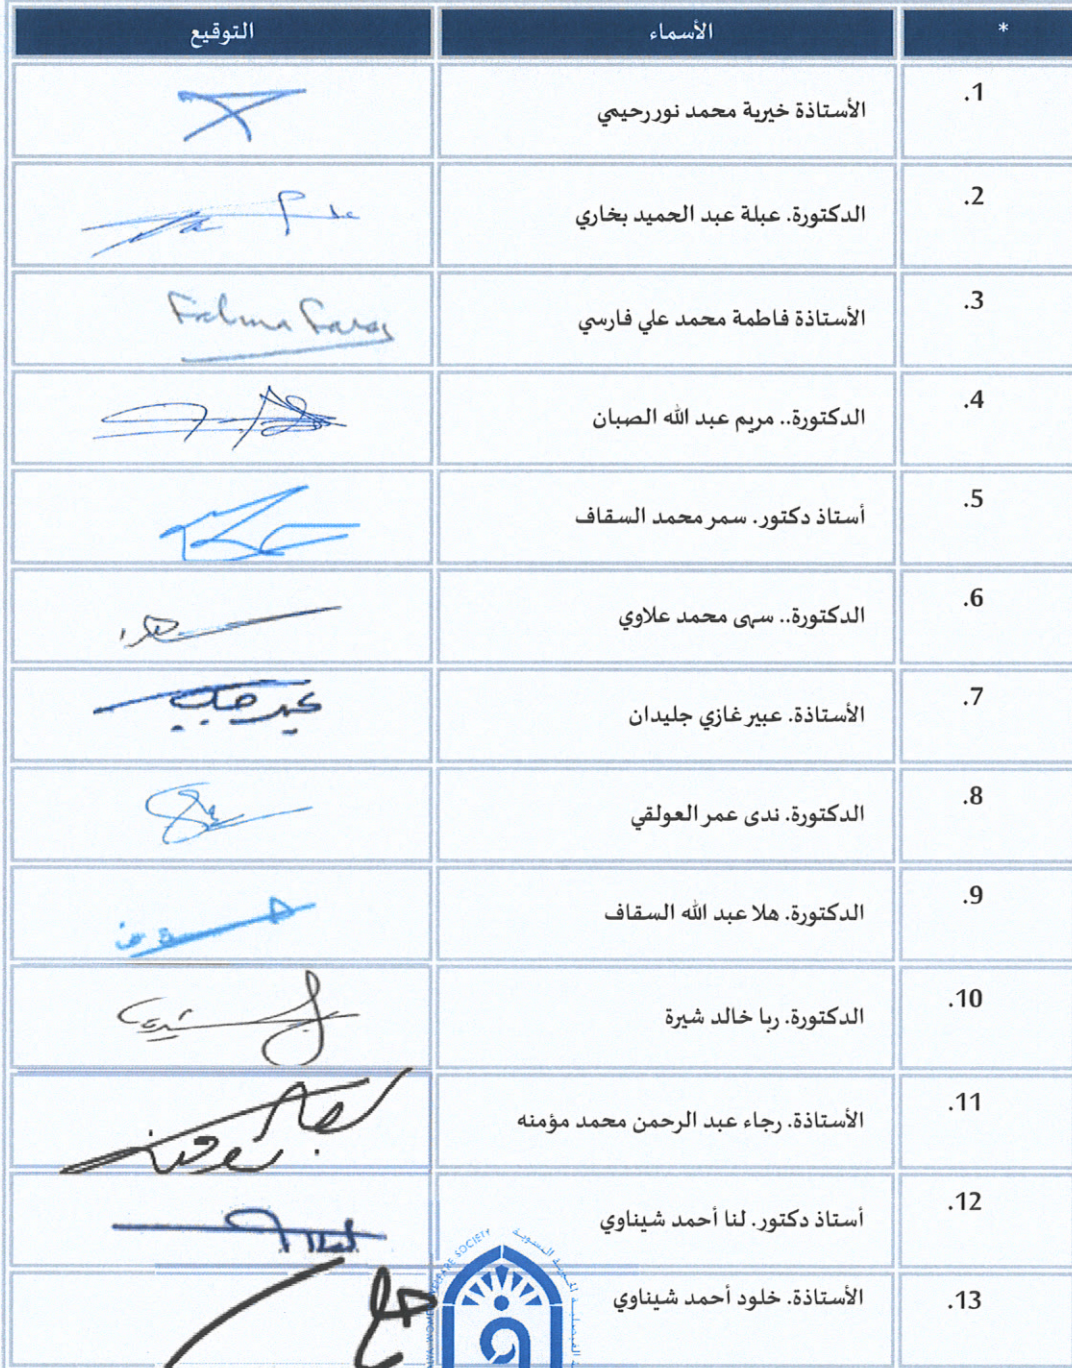 * الأسماء التوقيع
1. الأستاذة خيرية محمد نور رحيمي
2. الدكتورة. عبلة عبد الحميد بخاري
3. الأستاذة فاطمة محمد علي فارسي
4. الدكتورة.. مريم عبد الله الصبان
5. أستاذ دكتور. سمر محمد السقاف
6. الدكتورة.. سهى محمد علاوي
7. الأستاذة. عبير غازي جليدان
8. الدكتورة. ندى عمر العولقي
9. الدكتورة. هلا عبد الله السقاف
10. الدكتورة. ربا خالد شيرة
11. الأستاذة. رجاء عبد الرحمن محمد مؤمنه
12. أستاذ دكتور. لنا أحمد شيناوي
13. الأستاذة. خلود أحمد شيناوي
SOCIETY